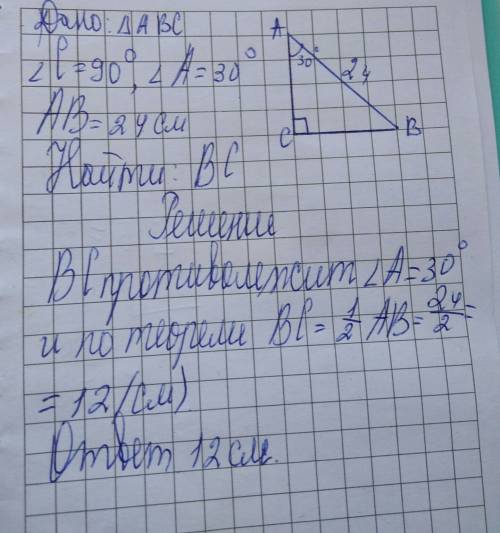 Дано: △ABC
∠C=90°, ∠A=30°
AB=24 см
Найти: BC
A
30°
24
C
B
Решение
BC противолежит ∠A=30°
и по теореме BC = 1/2 AB = 24/2 =
= 12 (см)
Ответ 12 см.